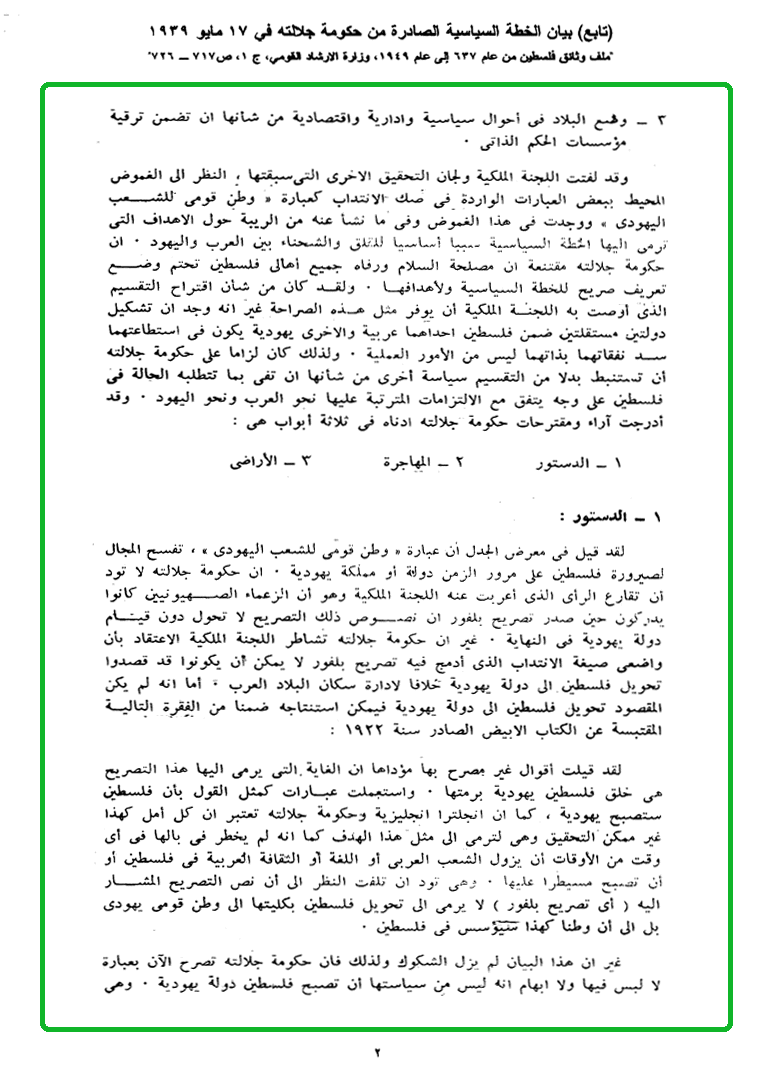 (تابع) بيان الخطة السياسية الصادرة من حكومة جلالته في ١٧ مايو ١٩٣٩
"ملف وثائق فلسطين من عام ٦٣٧ إلى عام ١٩٤٩، وزارة الارشاد القومي، ج ١، ص ٧١٧ – ٧٢٦"
٣ – وضع البلاد فى أحوال سياسية وادارية واقتصادية من شأنها ان تضمن ترقية
مؤسسات الحكم الذاتى ٠
وقد لفتت اللجنة الملكية ولجان التحقيق الاخرى التى سبقتها ، النظر الى الغموض
المحيط ببعض العبارات الواردة فى صك الانتداب كعبارة « وطن قومى للشعب
اليهودى » ووجدت فى هذا الغموض وفى ما نشأ عنه من الريبة حول الاهداف التى
ترمى اليها الخطة السياسية سببا أساسيا للقلق والشحناء بين العرب واليهود ٠ ان
حكومة جلالته مقتنعة ان مصلحة السلام ورفاه جميع أهالى فلسطين تحتم وضع
تعريف صريح للخطة السياسية ولأهدافها ٠ ولقد كان من شأن اقتراح التقسيم
الذى أوصت به اللجنة الملكية أن يوفر مثل هذه الصراحة غير انه وجد ان تشكيل
دولتين مستقلتين ضمن فلسطين احداهما عربية والاخرى يهودية يكون فى استطاعتهما
سد نفقاتهما بذاتهما ليس من الأمور العملية ٠ ولذلك كان لزاما على حكومة جلالته
أن تستنبط بدلا من التقسيم سياسة أخرى من شأنها ان تفى بما تتطلبه الحالة فى
فلسطين على وجه يتفق مع الالتزامات المترتبة عليها نحو العرب ونحو اليهود ٠ وقد
أدرجت آراء ومقترحات حكومة جلالته ادناه فى ثلاثة أبواب هى :
١ – الدستور ٢ – المهاجرة ٣ – الأراضى
١ – الدستور :
لقد قيل فى معرض الجدل أن عبارة « وطن قومى للشعب اليهودى » ، تفسح المجال
لصيرورة فلسطين على مرور الزمن دولة أو مملكة يهودية ٠ ان حكومة جلالته لا تود
أن تقارع الرأى الذى أعربت عنه اللجنة الملكية وهو أن الزعماء الصهيونيين كانوا
يدركون حين صدر تصريح بلفور ان نصوص ذلك التصريح لا تحول دون قيام
دولة يهودية فى النهاية ٠ غير ان حكومة جلالته تشاطر اللجنة الملكية الاعتقاد بأن
واضعى صيغة الانتداب الذى أدمج فيه تصريح بلفور لا يمكن أن يكونوا قد قصدوا
تحويل فلسطين الى دولة يهودية خلافا لادارة سكان البلاد العرب ٠ أما انه لم يكن
المقصود تحويل فلسطين الى دولة يهودية فيمكن استنتاجه ضمنا من الفقرة التالية
المقتبسة عن الكتاب الابيض الصادر سنة ١٩٢٢ :
لقد قيلت أقوال غير مصرح بها مؤداها ان الغاية التى يرمى اليها هذا التصريح
هى خلق فلسطين يهودية برمتها ٠ واستعملت عبارات كمثل القول بأن فلسطين
ستصبح يهودية ، كما ان انجلترا انجليزية وحكومة جلالته تعتبر ان كل أمل كهذا
غير ممكن التحقيق وهى لترمى الى مثل هذا الهدف كما انه لم يخطر فى بالها فى أى
وقت من الأوقات أن يزول الشعب العربى أو اللغة أو الثقافة العربية فى فلسطين أو
أن تصبح مسيطرا عليها ٠ وهى تود ان تلفت النظر الى أن نص التصريح المشار
اليه ( أى تصريح بلفور ) لا يرمى الى تحويل فلسطين بكليتها الى وطن قومى يهودى
بل الى أن وطنا كهذا سيؤسس فى فلسطين ٠
غير ان هذا البيان لم يزل الشكوك ولذلك فان حكومة جلالته تصرح الآن بعبارة
لا لبس فيها ولا ابهام انه ليس من سياستها أن تصبح فلسطين دولة يهودية ٠ وهى
٢